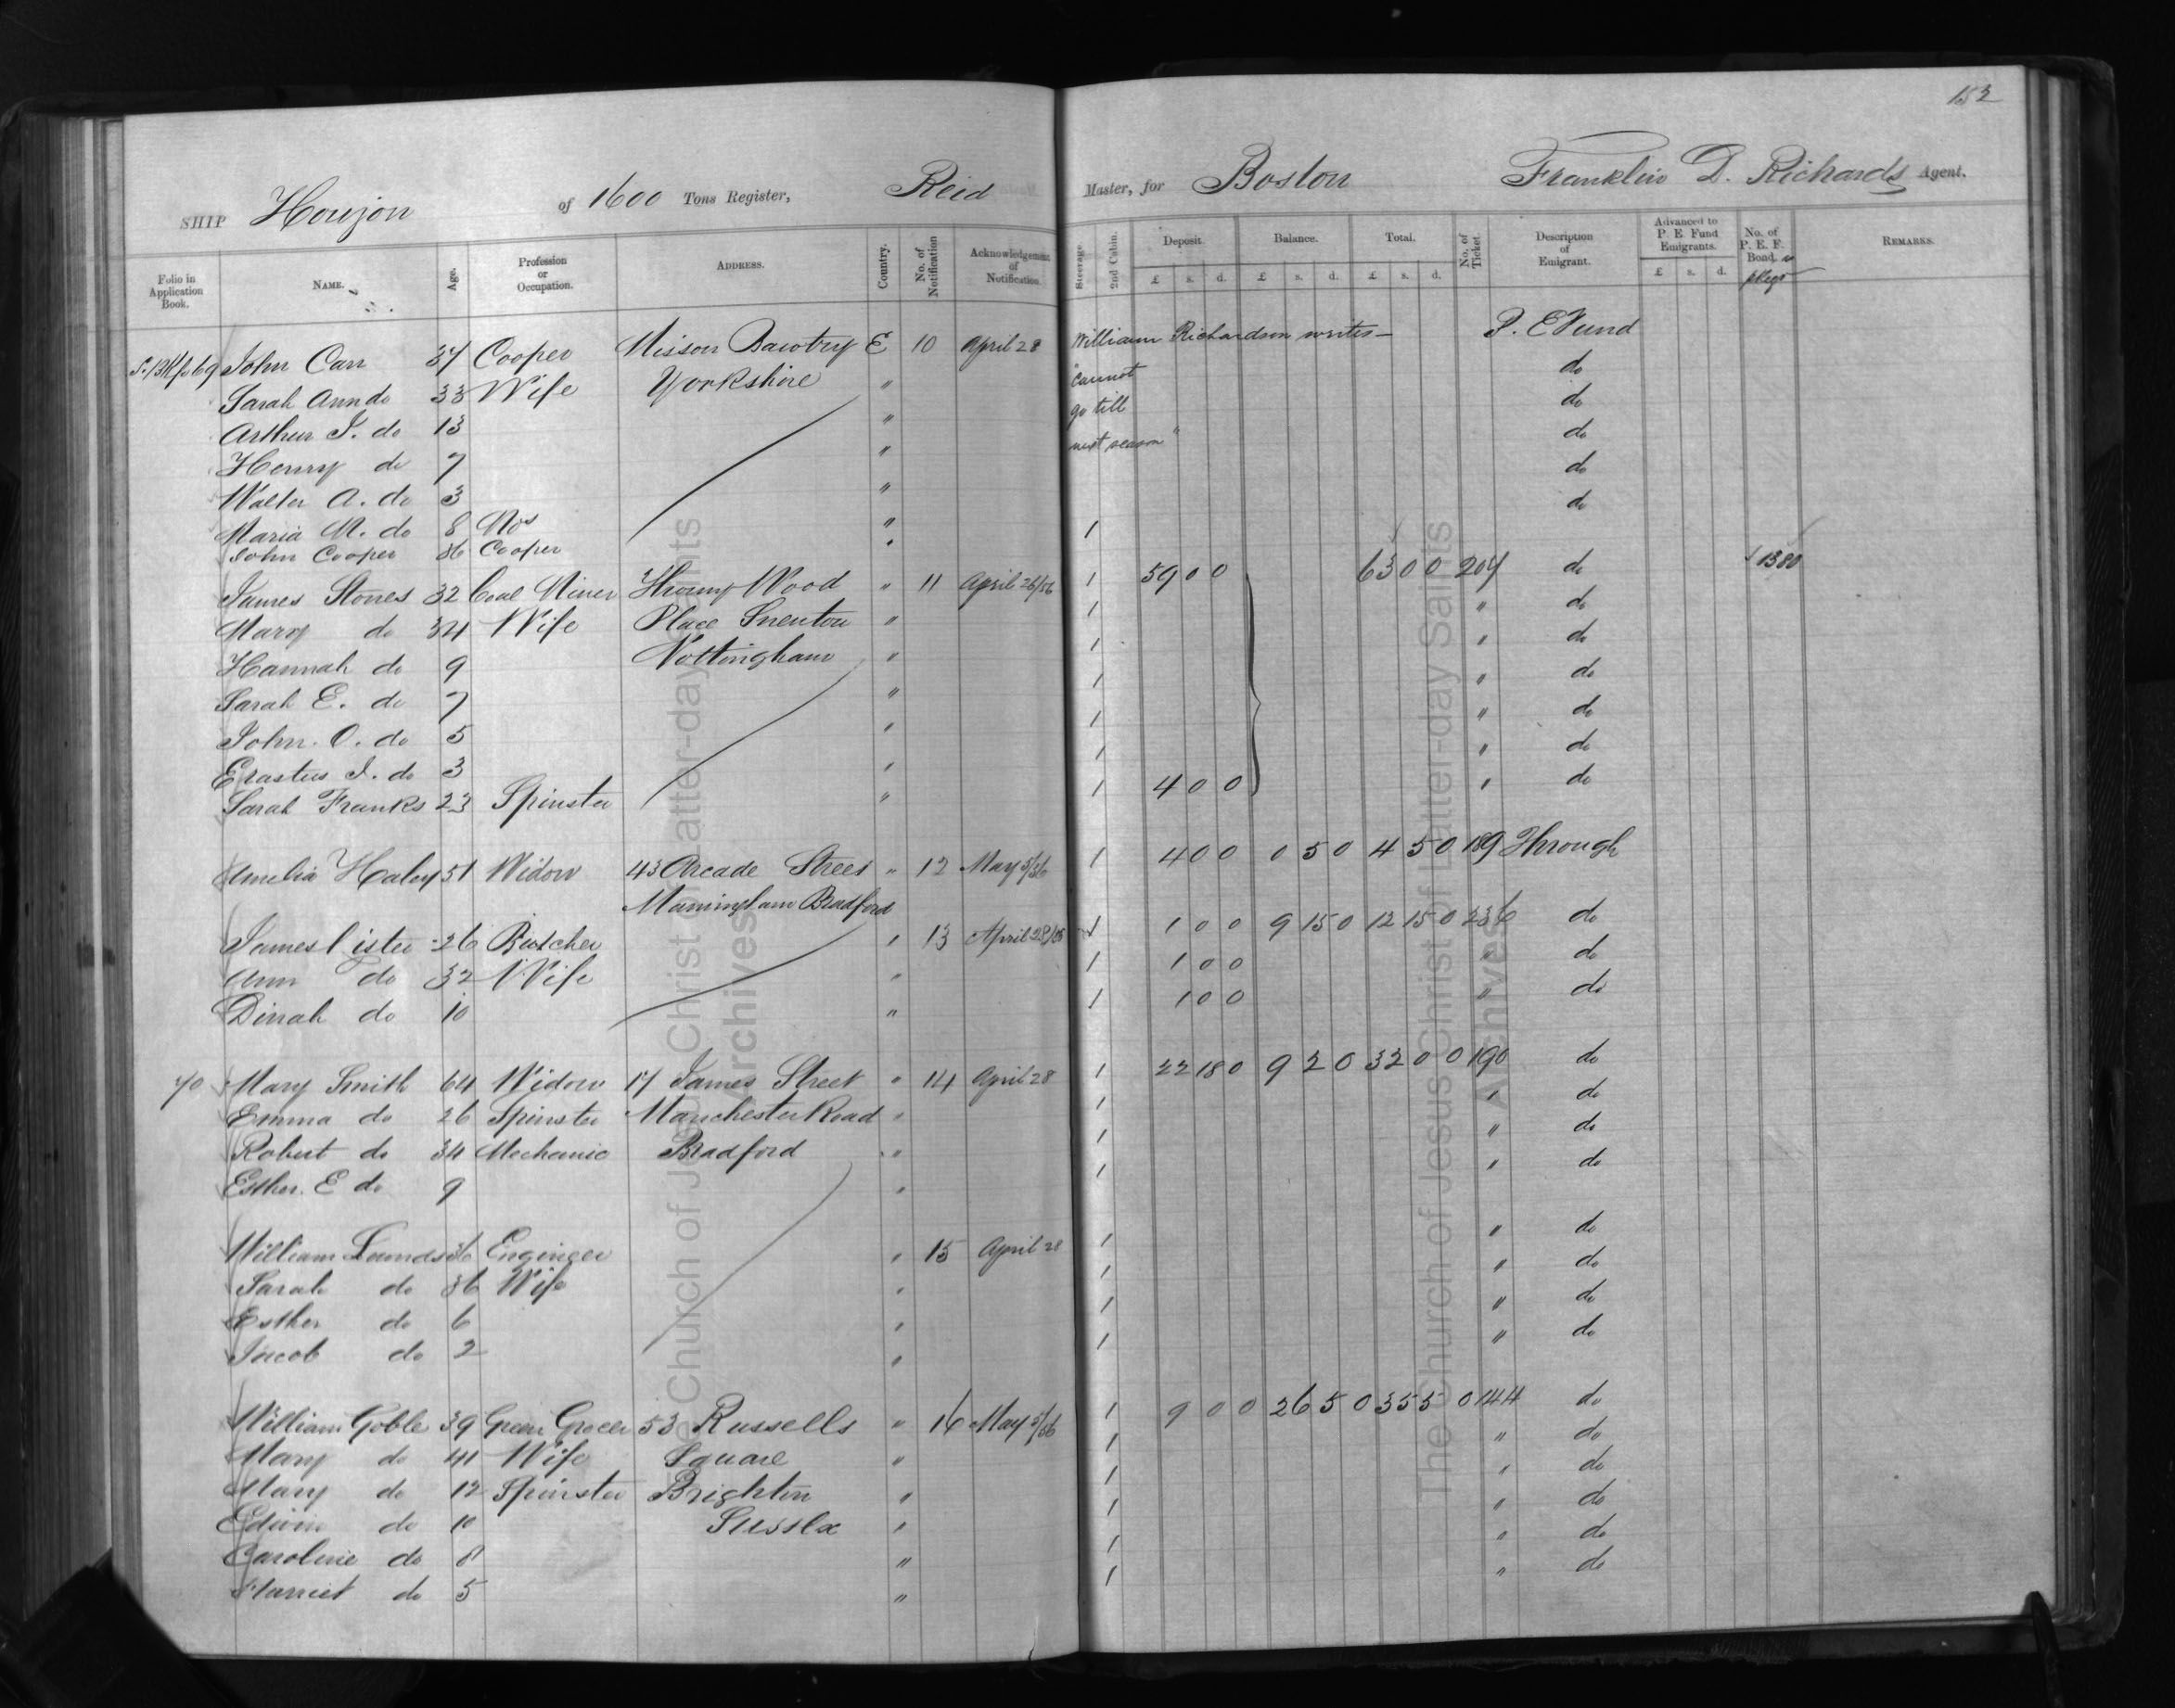 152
SHIP Horizon of 1600 Tons Register, Reid Master, for Boston Franklin D. Richards Agent.
Folio in Application Book. NAME. Age. Profession or Occupation. ADDRESS. Country. No. of Notification Acknowledgement of Notification. Steerage. 2nd Cabin. Deposit. £ s. d. Balance. £ s. d. Total. £ s. d. No. of Ticket. Description of Emigrant. Advanced to P. E. Fund Emigrants. £ s. d. No. of P. E. F. Bond, REMARKS.
69 John Carr 37 Cooper Misson Bawtry E 10 April 28 William Richardson writes— P. E Fund
Sarah Ann do 33 Wife Yorkshire " "cannot do
Arthur J. do 13 " go till do
Henry do 7 " next season" do
Walter A. do 3 " do
Maria M. do 8 " do
John Cooper 36 Cooper " 1
James Stones 32 Coal Miner Thorny Wood " 11 April 26/56 1 59 0 0 63 0 0 207 do 1380
Mary do 34 Wife Place Snenton " 1 " do
Hannah do 9 Nottingham " 1 " do
Sarah E. do 7 " 1 " do
John. O. do 5 " 1 " do
Erastus J. do 3 " 1 " do
Sarah Franks 23 Spinster " 1 4 0 0 " do
Amelia Haley 51 Widow 43 Arcade Street " 12 May 5/56 1 4 0 0 0 5 0 4 5 0 189 Through
Manningham Bradford
James Lister 26 Butcher " 13 April 28/56 1 1 0 0 9 15 0 12 15 0 236 do
Ann do 32 Wife " 1 1 0 0 " do
Dinah do 10 " 1 1 0 0 " do
70 Mary Smith 64 Widow 17 James Street " 14 April 28 1 22 18 0 9 2 0 32 0 0 190 do
Emma do 26 Spinster Manchester Road " 1 " do
Robert do 34 Mechanic Bradford " 1 " do
Esther. E do 9 " 1 " do
William Lunds 36 Engineer " 15 April 28 1 " do
Sarah do 36 Wife " 1 " do
Esther do 6 " 1 " do
Jacob do 2 " 1 " do
William Goble 39 Green Grocer 53 Russells " 16 May 5/56 1 9 0 0 26 5 0 35 5 0 144 do
Mary do 41 Wife Square " 1 " do
Mary do 12 Spinster Brighton " 1 " do
Edwin do 10 Sussex " 1 " do
Caroline do 8 " 1 " do
Harriet do 5 " 1 " do
The Church of Jesus Christ of Latter-day Saints
Archives
The Church of Jesus Christ of Latter-day Saints
Archives